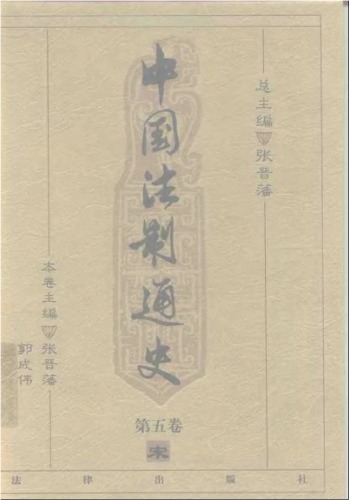 总主编 张晋藩
中国法制通史
本卷主编 张晋藩
郭成伟
第五卷
宋
法律出版社